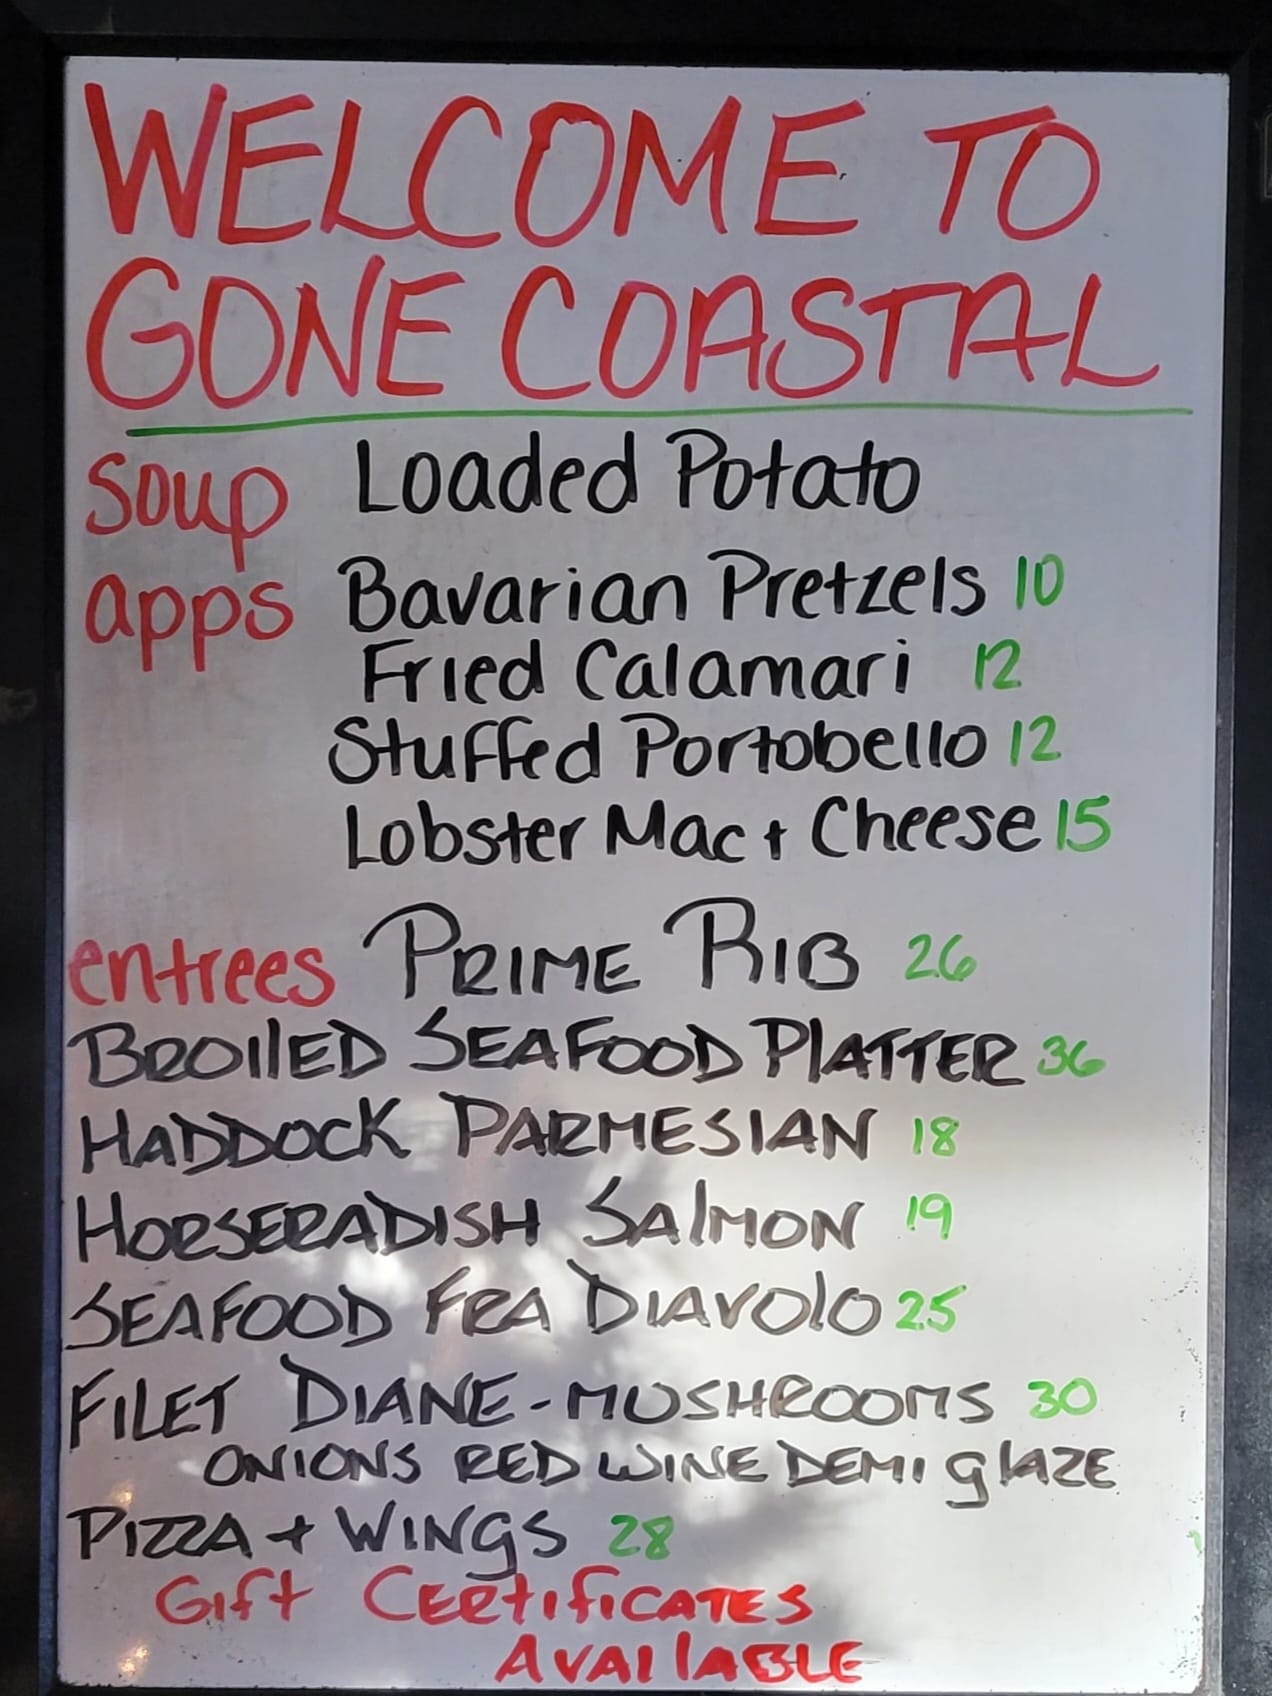 WELCOME TO
GONE COASTAL
soup Loaded Potato
apps Bavarian Pretzels 10
Fried Calamari 12
Stuffed Portobello 12
Lobster Mac + Cheese 15
entrees PRIME RIB 26
BROILED SEAFOOD PLATTER 36
HADDOCK PARMESIAN 18
HORSERADISH SALMON 19
SEAFOOD FRA DIAVOLO 25
FILET DIANE - MUSHROOMS 30
ONIONS RED WINE DEMI glAZE
PIZZA + WINGS 28
Gift CERTIFICATES
AVAILABLE